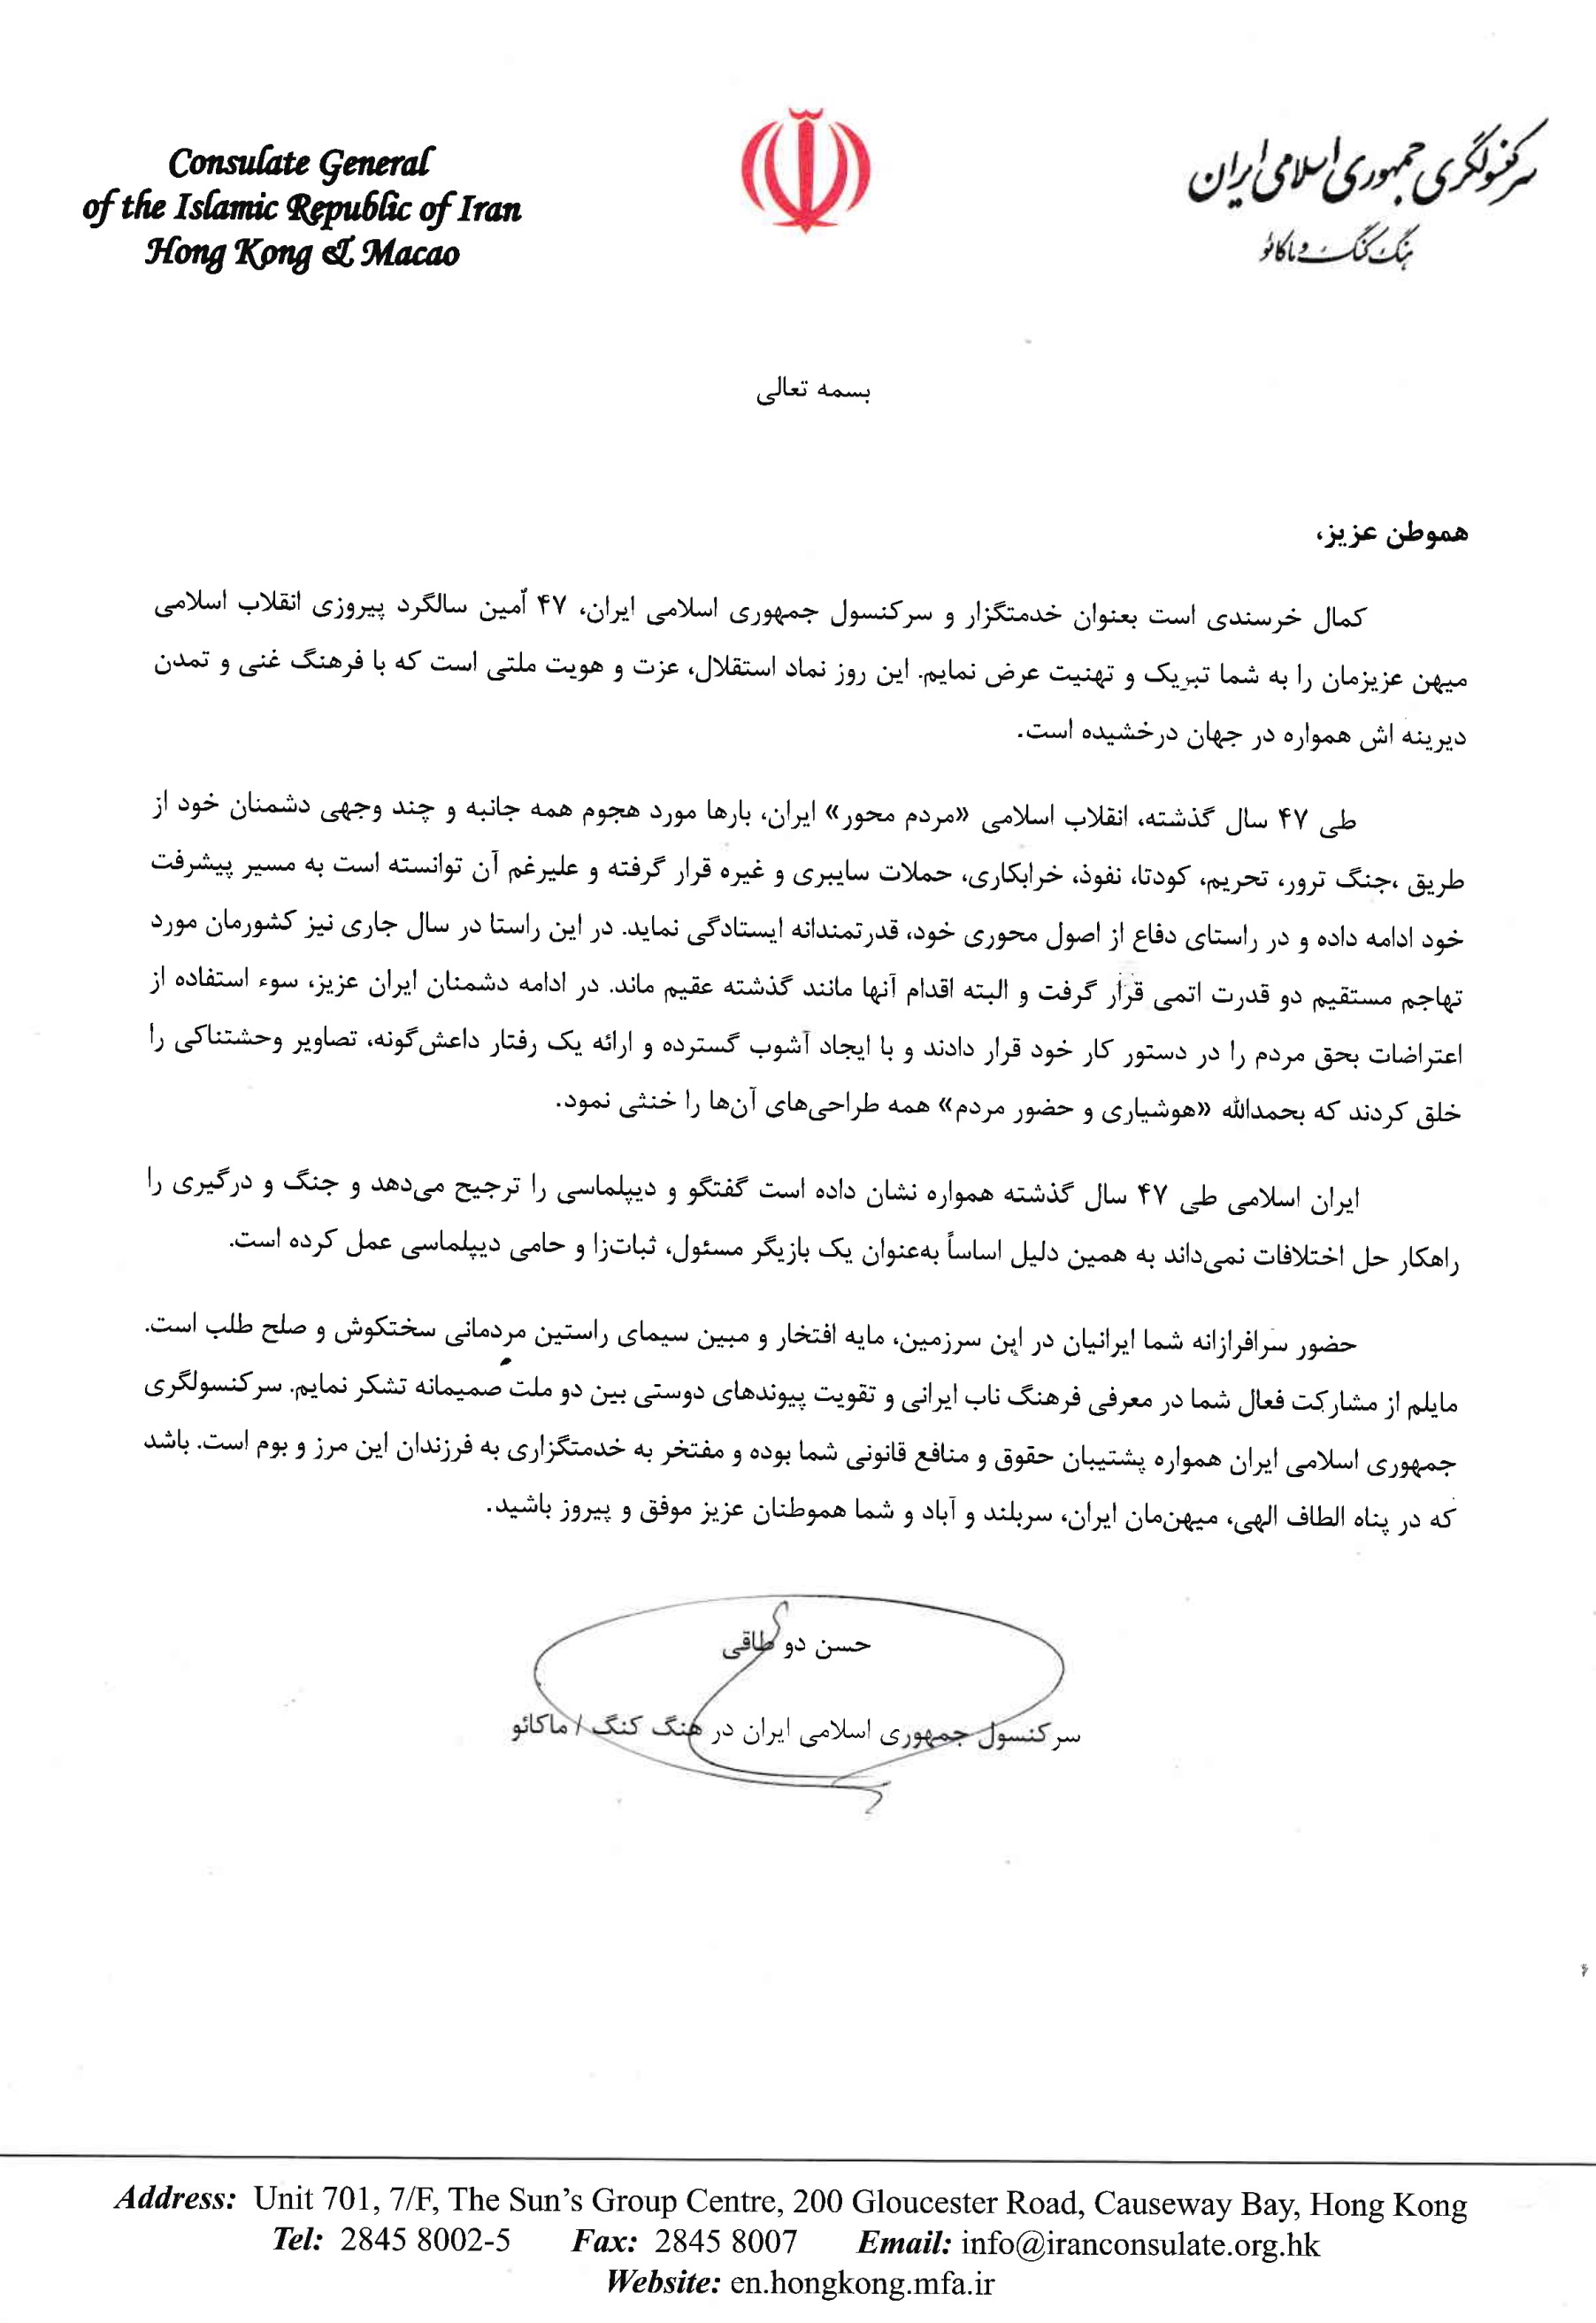 Consulate General
of the Islamic Republic of Iran
Hong Kong & Macao
سرکنسولگری جمهوری اسلامی ایران
هنگ کنگ و ماکائو
بسمه تعالی
هموطن عزیز،
کمال خرسندی است بعنوان خدمتگزار و سرکنسول جمهوری اسلامی ایران، ۴۷ اُمین سالگرد پیروزی انقلاب اسلامی
میهن عزیزمان را به شما تبریک و تهنیت عرض نمایم. این روز نماد استقلال، عزت و هویت ملتی است که با فرهنگ غنی و تمدن
دیرینه اش همواره در جهان درخشیده است.
طی ۴۷ سال گذشته، انقلاب اسلامی «مردم محور» ایران، بارها مورد هجوم همه جانبه و چند وجهی دشمنان خود از
طریق ،جنگ ترور، تحریم، کودتا، نفوذ، خرابکاری، حملات سایبری و غیره قرار گرفته و علیرغم آن توانسته است به مسیر پیشرفت
خود ادامه داده و در راستای دفاع از اصول محوری خود، قدرتمندانه ایستادگی نماید. در این راستا در سال جاری نیز کشورمان مورد
تهاجم مستقیم دو قدرت اتمی قرار گرفت و البته اقدام آنها مانند گذشته عقیم ماند. در ادامه دشمنان ایران عزیز، سوء استفاده از
اعتراضات بحق مردم را در دستور کار خود قرار دادند و با ایجاد آشوب گسترده و ارائه یک رفتار داعش‌گونه، تصاویر وحشتناکی را
خلق کردند که بحمدالله «هوشیاری و حضور مردم» همه طراحی‌های آن‌ها را خنثی نمود.
ایران اسلامی طی ۴۷ سال گذشته همواره نشان داده است گفتگو و دیپلماسی را ترجیح می‌دهد و جنگ و درگیری را
راهکار حل اختلافات نمی‌داند به همین دلیل اساساً به‌عنوان یک بازیگر مسئول، ثبات‌زا و حامی دیپلماسی عمل کرده است.
حضور سرافرازانه شما ایرانیان در این سرزمین، مایه افتخار و مبین سیمای راستین مردمانی سختکوش و صلح طلب است.
مایلم از مشارکت فعال شما در معرفی فرهنگ ناب ایرانی و تقویت پیوندهای دوستی بین دو ملت صمیمانه تشکر نمایم. سرکنسولگری
جمهوری اسلامی ایران همواره پشتیبان حقوق و منافع قانونی شما بوده و مفتخر به خدمتگزاری به فرزندان این مرز و بوم است. باشد
که در پناه الطاف الهی، میهن‌مان ایران، سربلند و آباد و شما هموطنان عزیز موفق و پیروز باشید.
حسن دو طاقی
سرکنسول جمهوری اسلامی ایران در هنگ کنگ / ماکائو
Address: Unit 701, 7/F, The Sun's Group Centre, 200 Gloucester Road, Causeway Bay, Hong Kong
Tel: 2845 8002-5 Fax: 2845 8007 Email: info@iranconsulate.org.hk
Website: en.hongkong.mfa.ir